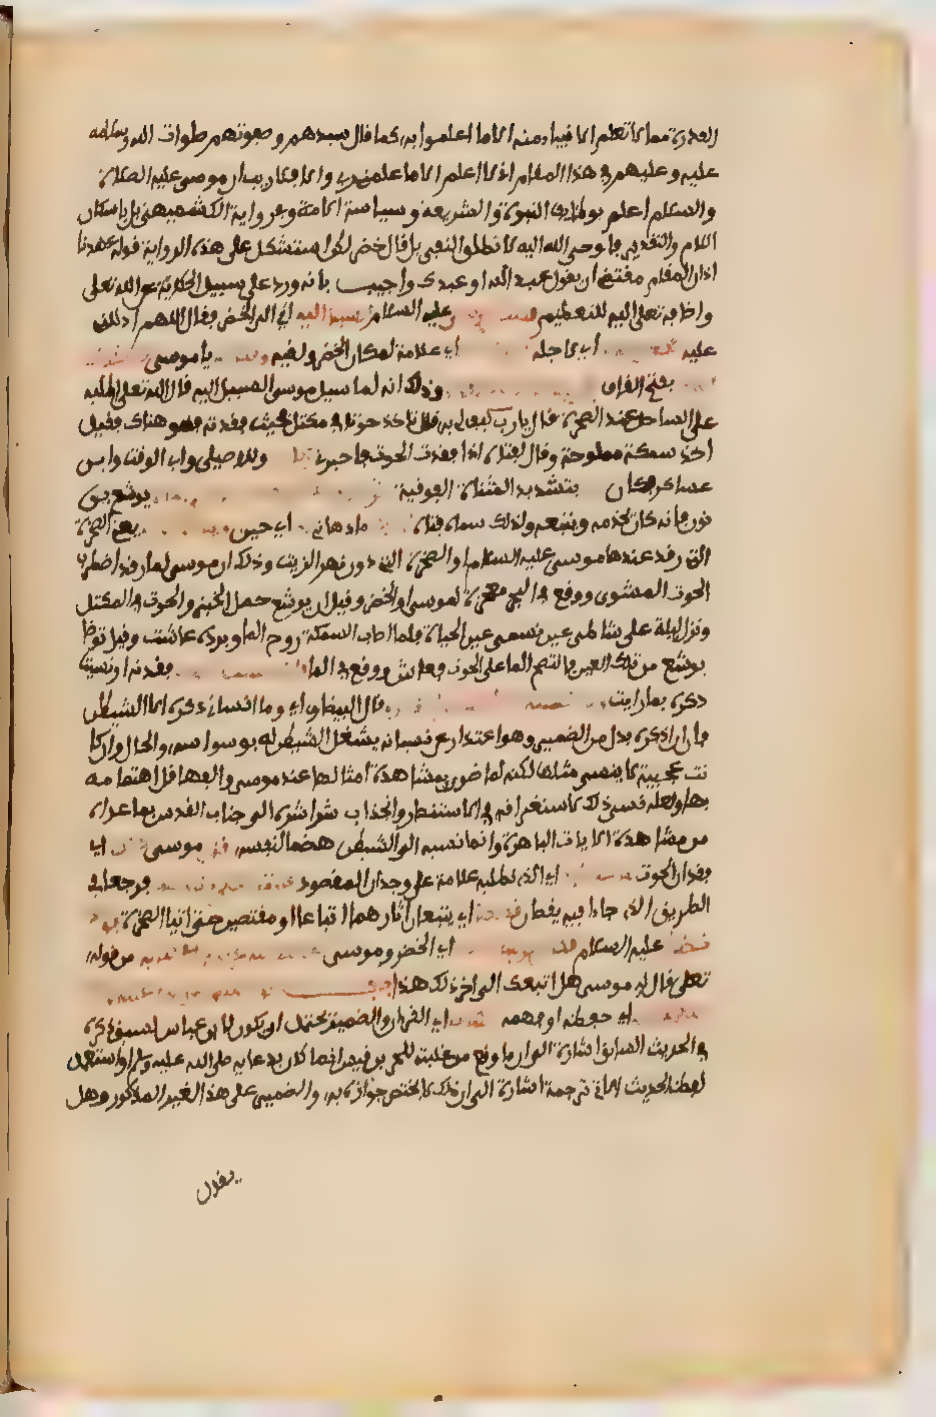 القدرة مما لا تعلم الانبياء منه الا ما اعلموا به كما قال سيدهم وصفوتهم صلوات الله وسلامه
عليه وعليهم في هذا المقام اني لا اعلم الا ما علمني ربي والا فلا ريب ان موسى عليه الصلاة
والسلام اعلم بوظايف النبوة والشريعة وسياسة الامة وفي رواية الكشميهني بل باسكان
اللام والتقدير فاوحى الله اليه لا تطلق النفي بل قل خضر لكن استشكل على هذه الرواية قوله عبدنا
اذ ان المقام مقتض ان يقول عبد الله او عبدك واجيب بانه ورد على سبيل الحكاية عن الله تعلى
واضافه تعلى اليه للتعظيم عليه السلام السبيل اليه اي الى الخضر فقال اللهم ادللني
عليه اي لاجله اي علامة لمكان الخضر ولقيه يا موسى
بفتح القاف وذلك انه لما سيل موسى السبيل اليه قال الله تعلى اطلبه
على الساحل عند الصخرة قال يارب كيف لي به قال تاخذ حوتا في مكتل فحيث فقدته فهو هناك فقيل
اخذ سمكة مملوحة وقال لفتاه اذا فقدت الحوت فاخبرني وللاصيلي وابي الوقت وابن
عساكر فكان بتشديد المثناة الفوقية يوشع بن
نون فانه كان يخدمه ويتبعه ولذلك سماه فتاه ما دهاني اي حين يعني الصخرة
التي رقد عندها موسى عليه السلام او الصخرة التي دون نهر الزيت وذلك ان موسى لما رقد اضطرب
الحوت المشوى ووقع في البحر معجزة لموسى او الخضر وقيل ان يوشع حمل الخبز والحوت في المكتل
ونزلا ليلة على شاطئ عين تسمى عين الحياة فلما اصاب السمكة روح الماء وبرده عاشت وقيل توضا
يوشع من تلك العين فانتضح الماء على الحوت فعاش ووقع في الماء فقدته او نسيت
ذكره بما رايت قال البيضاوي اي وما انساني ذكره الا الشيطن
فان ان اذكره بدل من الضمير وهو اعتذار عن نسيانه بشغل الشيطن له بوسواسه والحال وان كا
نت عجيبة لا ينسى مثلها لكنه لما ضرى بمشاهدة امثالها عند موسى والفها قل اهتمامه
بها ولعله نسي ذلك لاستغراقه في الاستبصار وانجذاب شراشره الى جناب القدس بما عراه
من مشاهدة الايات الباهرة وانما نسبه الى الشيطن هضما لنفسه قال موسى اي
فقدان الحوت اي الذي نطلبه علامة على وجدان المقصود فرجعا في
الطريق الذي جاءا فيه يقصان اي يتبعان اثارهما اتباعا او مقتصين حتى اتيا الصخرة
عليه السلام اي الخضر وموسى من قوله
تعلى قال له موسى هل اتبعك الى اخر ذلك هذا
اي حفظه او فهمه اي القران والضمير يحتمل ان يكون لابن عباس لسبق ذكره
في الحديث السابق اشارة الى ان ما وقع من غلبته للحر بن قيس انما كان بدعايه صلى الله عليه وسلم او استعمل
لفظ الحديث الاتي ترجمة اشارة الى ان ذلك لا يختص جوازه به والضمير على هذا لغير المذكور وهل
يقال